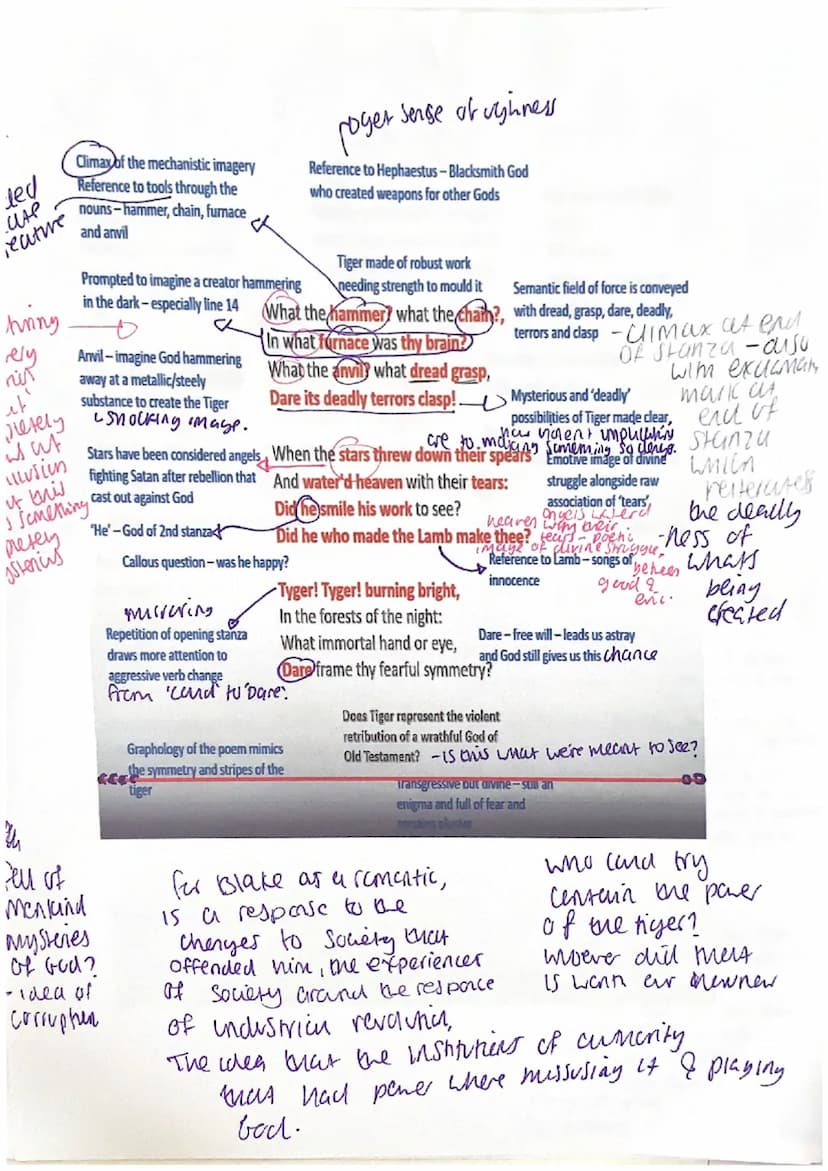 sense of
Climax of the mechanistic imagery
Reference to tools through the
nouns – hammer, chain, furnace
and anvil
Reference to Hephaestus – Blacksmith God
who created weapons for other Gods
Prompted to imagine a creator hammering
in the dark – especially line 14
Tiger made of robust work
needing strength to mould it
Semantic field of force is conveyed
with dread, grasp, dare, deadly,
terrors and clasp
- climax at end
of stanza - also
with
mark at
end of
stanza
which
reiterates
the deadly
-ness of
whats
being
created
Anvil – imagine God hammering
away at a metallic/steely
substance to create the Tiger
shocking image.
What the hammer? what the chain?,
In what furnace was thy brain?
What the anvil? what dread grasp,
Dare its deadly terrors clasp!
Mysterious and 'deadly'
possibilities of Tiger made clear,
Stars have been considered angels
fighting Satan after rebellion that
cast out against God
When the stars threw down their spears
And water'd heaven with their tears:
Did he smile his work to see?
Did he who made the Lamb make thee?
Emotive image of divine
struggle alongside raw
association of 'tears',
image of divine struggle,
good &
evil.
'He' – God of 2nd stanza
Callous question – was he happy?
Reference to Lamb – songs of
innocence
mirroring
Repetition of opening stanza
draws more attention to
aggressive verb change
from 'could' to 'Dare'.
Tyger! Tyger! burning bright,
In the forests of the night:
What immortal hand or eye,
Dare frame thy fearful symmetry?
Dare – free will – leads us astray
and God still gives us this chance
Does Tiger represent the violent
retribution of a wrathful God of
Old Testament? - is this what we're meant to see?
Graphology of the poem mimics
the symmetry and stripes of the
tiger
Transgressive but divine – still an
enigma and full of fear and
of
mankind
mysteries
of God?
- idea of
corruption
for Blake as a romantic,
is a response to the
changes to society that
offended him, the experiences
of society around the response
of industrial revolution,
The idea that the institutions of authority
that had power where missusing it & playing
God.
who could try
contain the power
of the tiger?
whoever did that
is